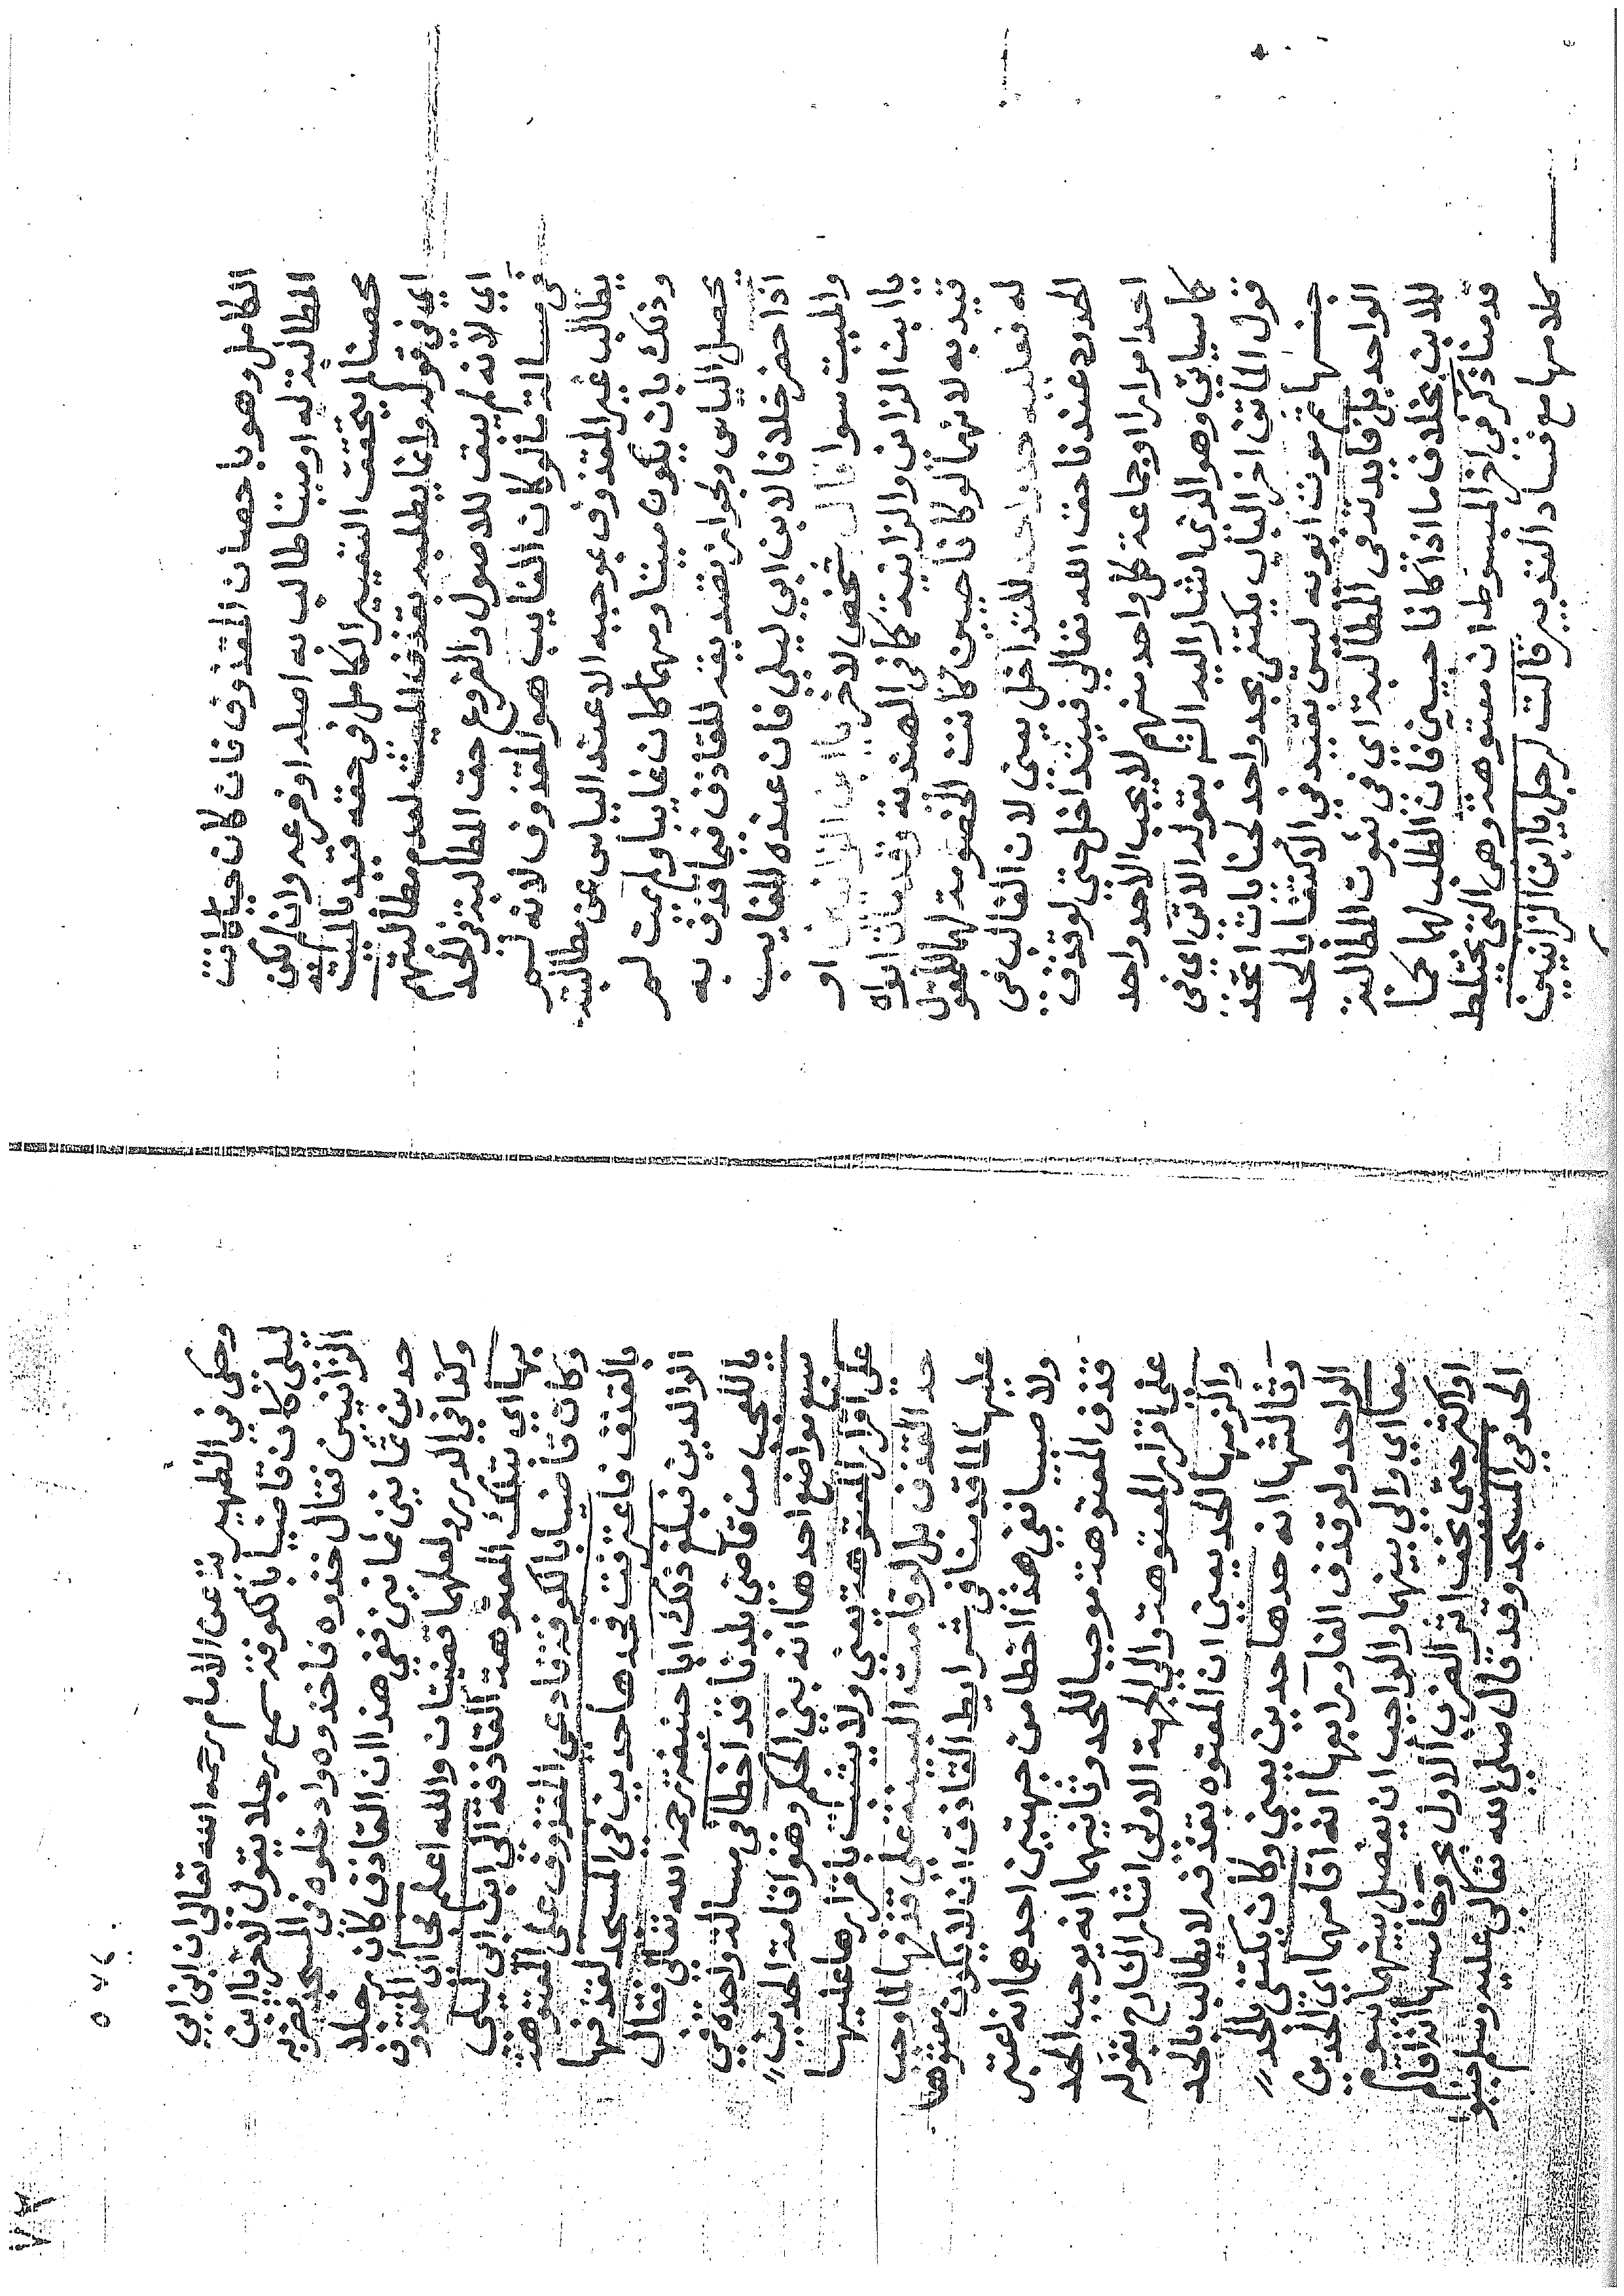 الكامل وهو باحصان المقذوف فان كان حيا كانت
المطالبة له او ميتا طالب به اصله او فرعه وان لم يكن
محصنا لم يتحقق التعيير الكامل في حقه قيد بالميت لانه
اي في قوله وانما يطلبه بقذف الميت لعدم مطالبتهم
اي لانه لم يبق للاصول والفروع حق المطالبة في الحد
في مسالة ما لو كان الغايب هو المقذوف لانه لم
يطالب غير المقذوف بموجبه الا عند الياس عن مطالبته
وذلك بان يكون ميتا ومهما كان غايبا ولم يمت لم
يحصل الياس ولجواز تصديقه للقاذف فيما قذف به
اذا حضر خلافا لابن ابي ليلى فان عنده الغايب
والميت سوا قال شخص لاخر يا ابن الزانيين او
يا ابن الزاني والزانية كما في الهندية وقد مات ابواه
قيد به لانهما لو كانا حيين كانت الخصومة لهما للحوق
له فعليه حد واحد للتداخل يعني لان الغالب في
الحدود عندنا حق الله تعالى فيتداخل حتى لو قذف
احدا مرارا او جماعة كل واحد منهم لا يجب الا حد واحد
كما سياتي وهو الذي اشار اليه الش بقوله الاتي اي في
قول الماتن اخر الباب يكتفى بحد واحد لجنايات اتحد
جنسها ثم موت ابويه ليس بقيد في الاكتفا بالحد
الواحد بل فايدته في المطالبة اي في ثبوت المطالبة
للابن بخلاف ما اذا كانا حيين فان الطلب لهما كما
قدمنا ذكر في اخر المبسوط ان معتوهة وهي التي يختلط
كلامها مع فساد التدبير قالت لرجل يا ابن الزانيين
٥٧٤
وحكى في الظهيرية عن الامام رحمه الله تعالى ان ابن ابي
ليلى كان قاضيا بالكوفة سمع رجلا يقول لاخر يا ابن
الزانيين فقال خذوه فاخذوه وادخلوه في المسجد فضربه
حدين ثمانين ثمانين ففي هذا ان القاذف كان رجلا
وكذا في الدرر ولعلهما قضيتان والله اعلم فجا اي المقذوف
بها اي بتلك المعتوهة القاذفة الى ابن ابي ليلى
وكان قاضيا بالكوفة فادعى المقذوف على المعتوهة
بالقذف فاعترفت فحدها حدين في المسجد لقذفها
الوالدين فبلغ ذلك ابا حنيفة رحمه الله تعالى فقال
يا للعجب من قاضي بلدنا قد اخطا في مسالة واحدة في
سبع مواضع احدها انه بنى الحكم وهو اقامة الحدين
على اقرار المعتوهة يعني ولا يثبت باقرارها عليها
حد القذف بل لو قامت البينة على قذفها لما وجب
عليها لما قدمنا في شرايط القاذف ان لا يكون معتوها
ولا صبيا ففي هذا اخطا من جهتين احدهما انه اعتبر
قذف المعتوهة موجبا للحد وثانيهما انه يوجب الحد
على اقرار المعتوهة والى الجهة الاولى اشار الشارح بقوله
والزمها الحد يعني ان المعتوه بقذفه لا يطالب بالحد
وثالثها انه حدها حدين يعني وكان يكتفى بالحد
الواحد ولو قذف الفا ورابعها انه اقامهما اي الحدين
معا اي والى بينهما والواجب ان يفصل بينهما بيوم
او اكثر حتى يخف اثر الضرب الاول وخامسها انه اقام
الحد في المسجد وقد قال صلى الله تعالى عليه وسلم جنبوا